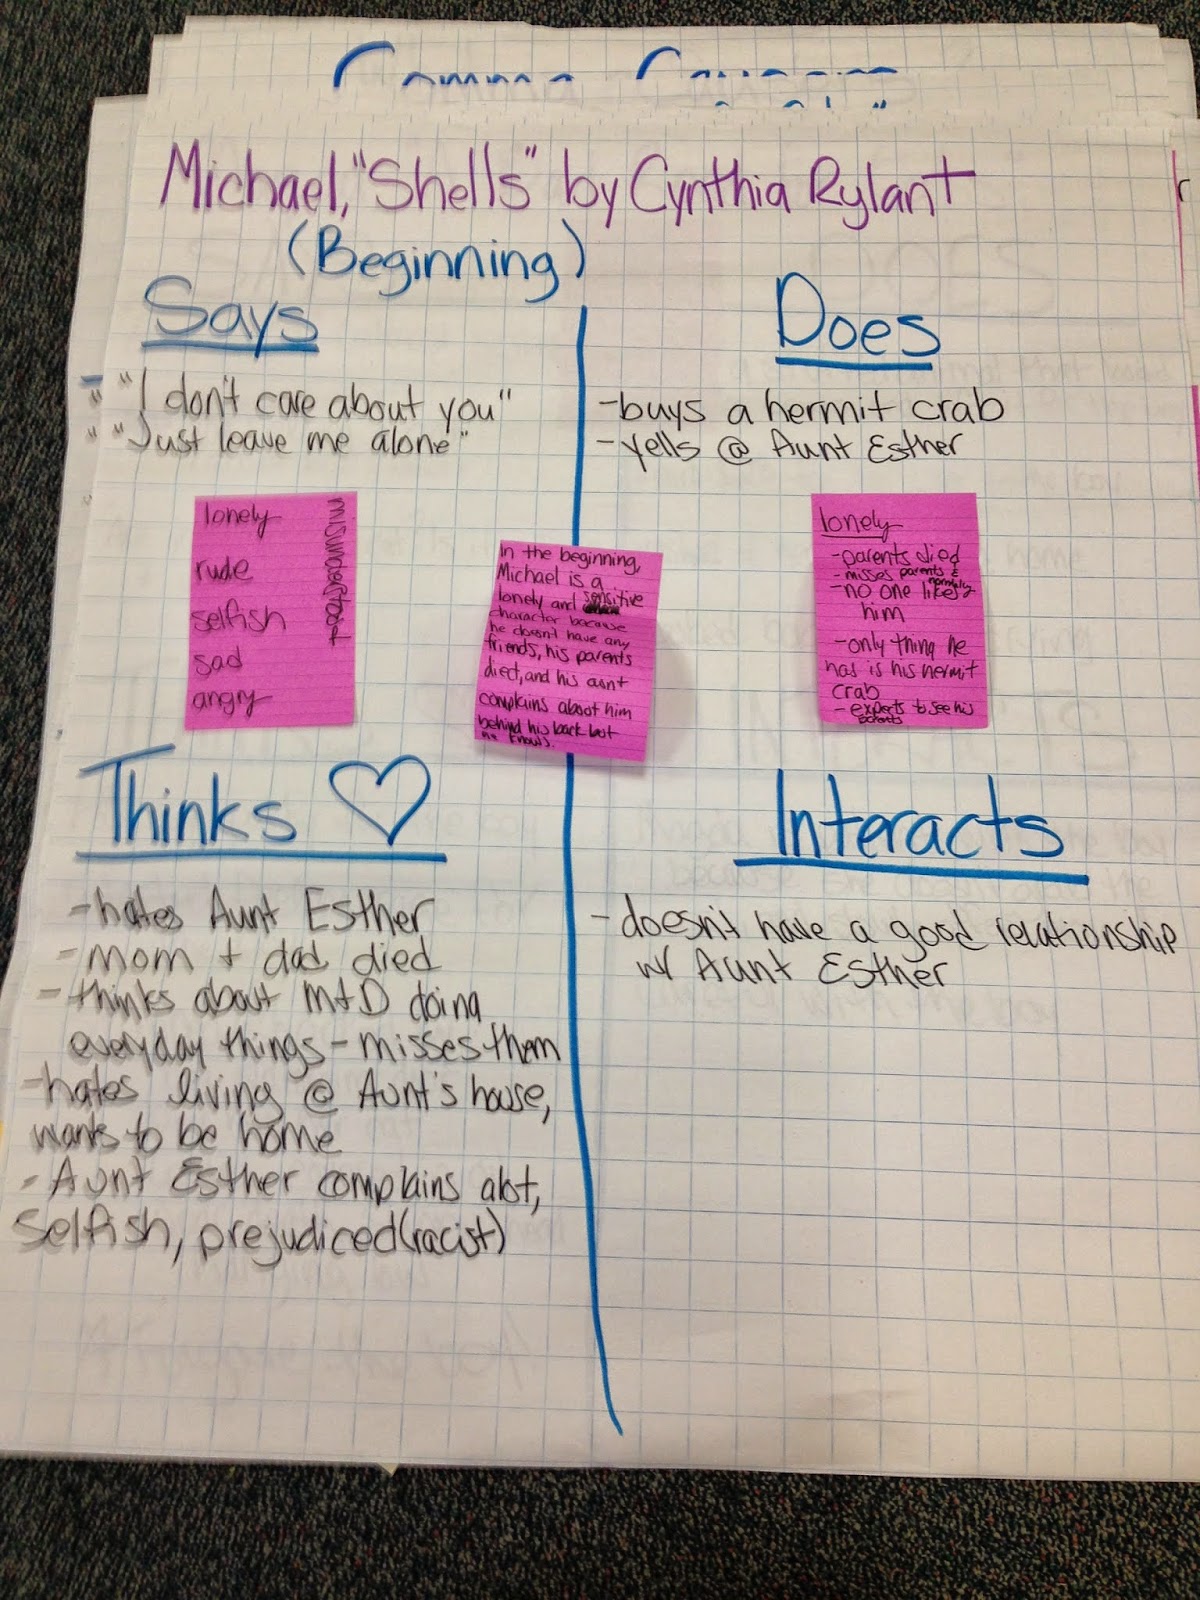 Michael, "Shells" by Cynthia Rylant
(Beginning)
Says
"I don't care about you"
"Just leave me alone"
lonely
rude
selfish
sad
angry
misunderstood
Does
-buys a hermit crab
-yells @ Aunt Esther
In the beginning,
Michael is a
lonely and sensitive
character because
he doesn't have any
friends, his parents
died, and his aunt
complains about him
behind his back but
he knows.
lonely
-parents died
-misses parents & normalcy
-no one likes
him
-only thing he
has is his hermit
crab
-expects to see his
parents
Thinks ♡
-hates Aunt Esther
-mom + dad died
-thinks about M+D doing
everyday things-misses them
-hates living @ Aunt's house,
wants to be home
-Aunt Esther complains alot,
selfish, prejudiced(racist)
Interacts
-doesn't have a good relationship
w/ Aunt Esther